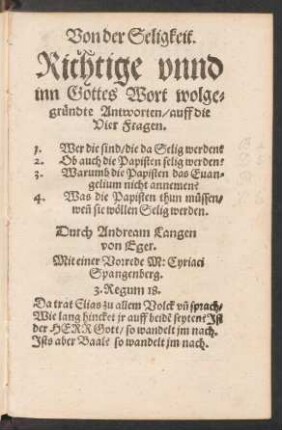 Von der Seligkeit.
Richtige vnnd
inn Gottes Wort wolge-
gründte Antworten/auff die
Vier Fragen.
1. Wer die sind/die da Selig werden?
2. Ob auch die Papisten selig werden?
3. Warumb die Papisten das Euan-
gelium nicht annemen?
4. Was die Papisten thun müssen/
weñ sie wöllen Selig werden.
Durch Andream Langen
von Eger.
Mit einer Vorrede M: Cyriaci
Spangenberg.
3. Regum 18.
Da trat Elias zu allem Volck vñ sprach/
Wie lang hincket jr auff beidē seyten? Ist
der HERR Gott/ so wandelt jm nach.
Ists aber Baal? so wandelt jm nach.